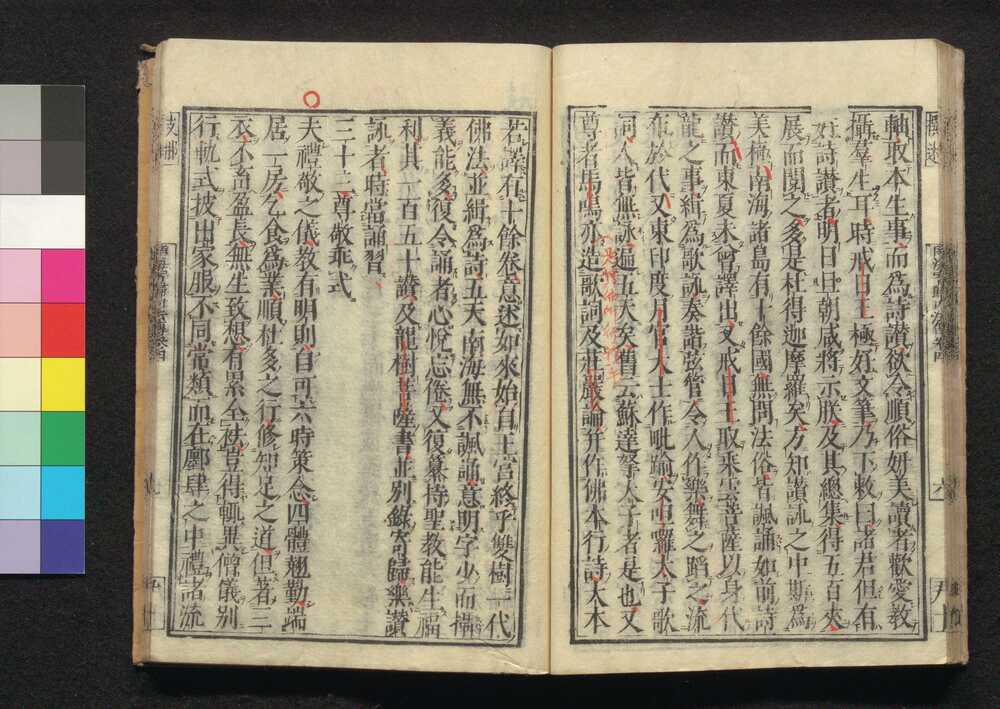 軸取本生事而爲詩讃欲令順俗妍美讀者歡愛教
攝羣生耳時戒日王極好文筆乃下敕曰諸君但有
好詩讃者明日旦朝咸將示朕及其總集得五百夾
展而閱之多是社得迦摩羅矣方知讃詠之中斯爲
美極南海諸島有十餘國無問法俗皆諷誦如前詩
讃而東夏未曾譯出又戒日王取乘雲菩薩以身代
龍之事緝爲歌詠奏諧弦管令人作樂舞之蹈之流
布於代又東印度月官大士作毗輸安呾囉太子歌
詞人皆無詠遍五天矣舊云蘇達拏太子者是也又
尊者馬鳴亦造歌詞及莊嚴論并作佛本行詩大本
若譯有十餘卷意述如來始自王宮終乎雙樹一代
佛法並緝爲詩五天南海無不諷誦意明字少而攝
義能多復令誦者心悅忘倦又復纂持聖教能生福
利其一百五十讃及龍樹菩薩書並別錄寄歸樂讃
詠者時當誦習
三十三尊敬乖式
夫禮敬之儀教有明則自可六時策念四體翹勤端
居一房乞食爲業順杜多之行修知足之道但著三
衣不畜盈長無生致想有累全祛豈得輒異僧儀別
行軌式披出家服不同常類而在鄽肆之中禮諸流